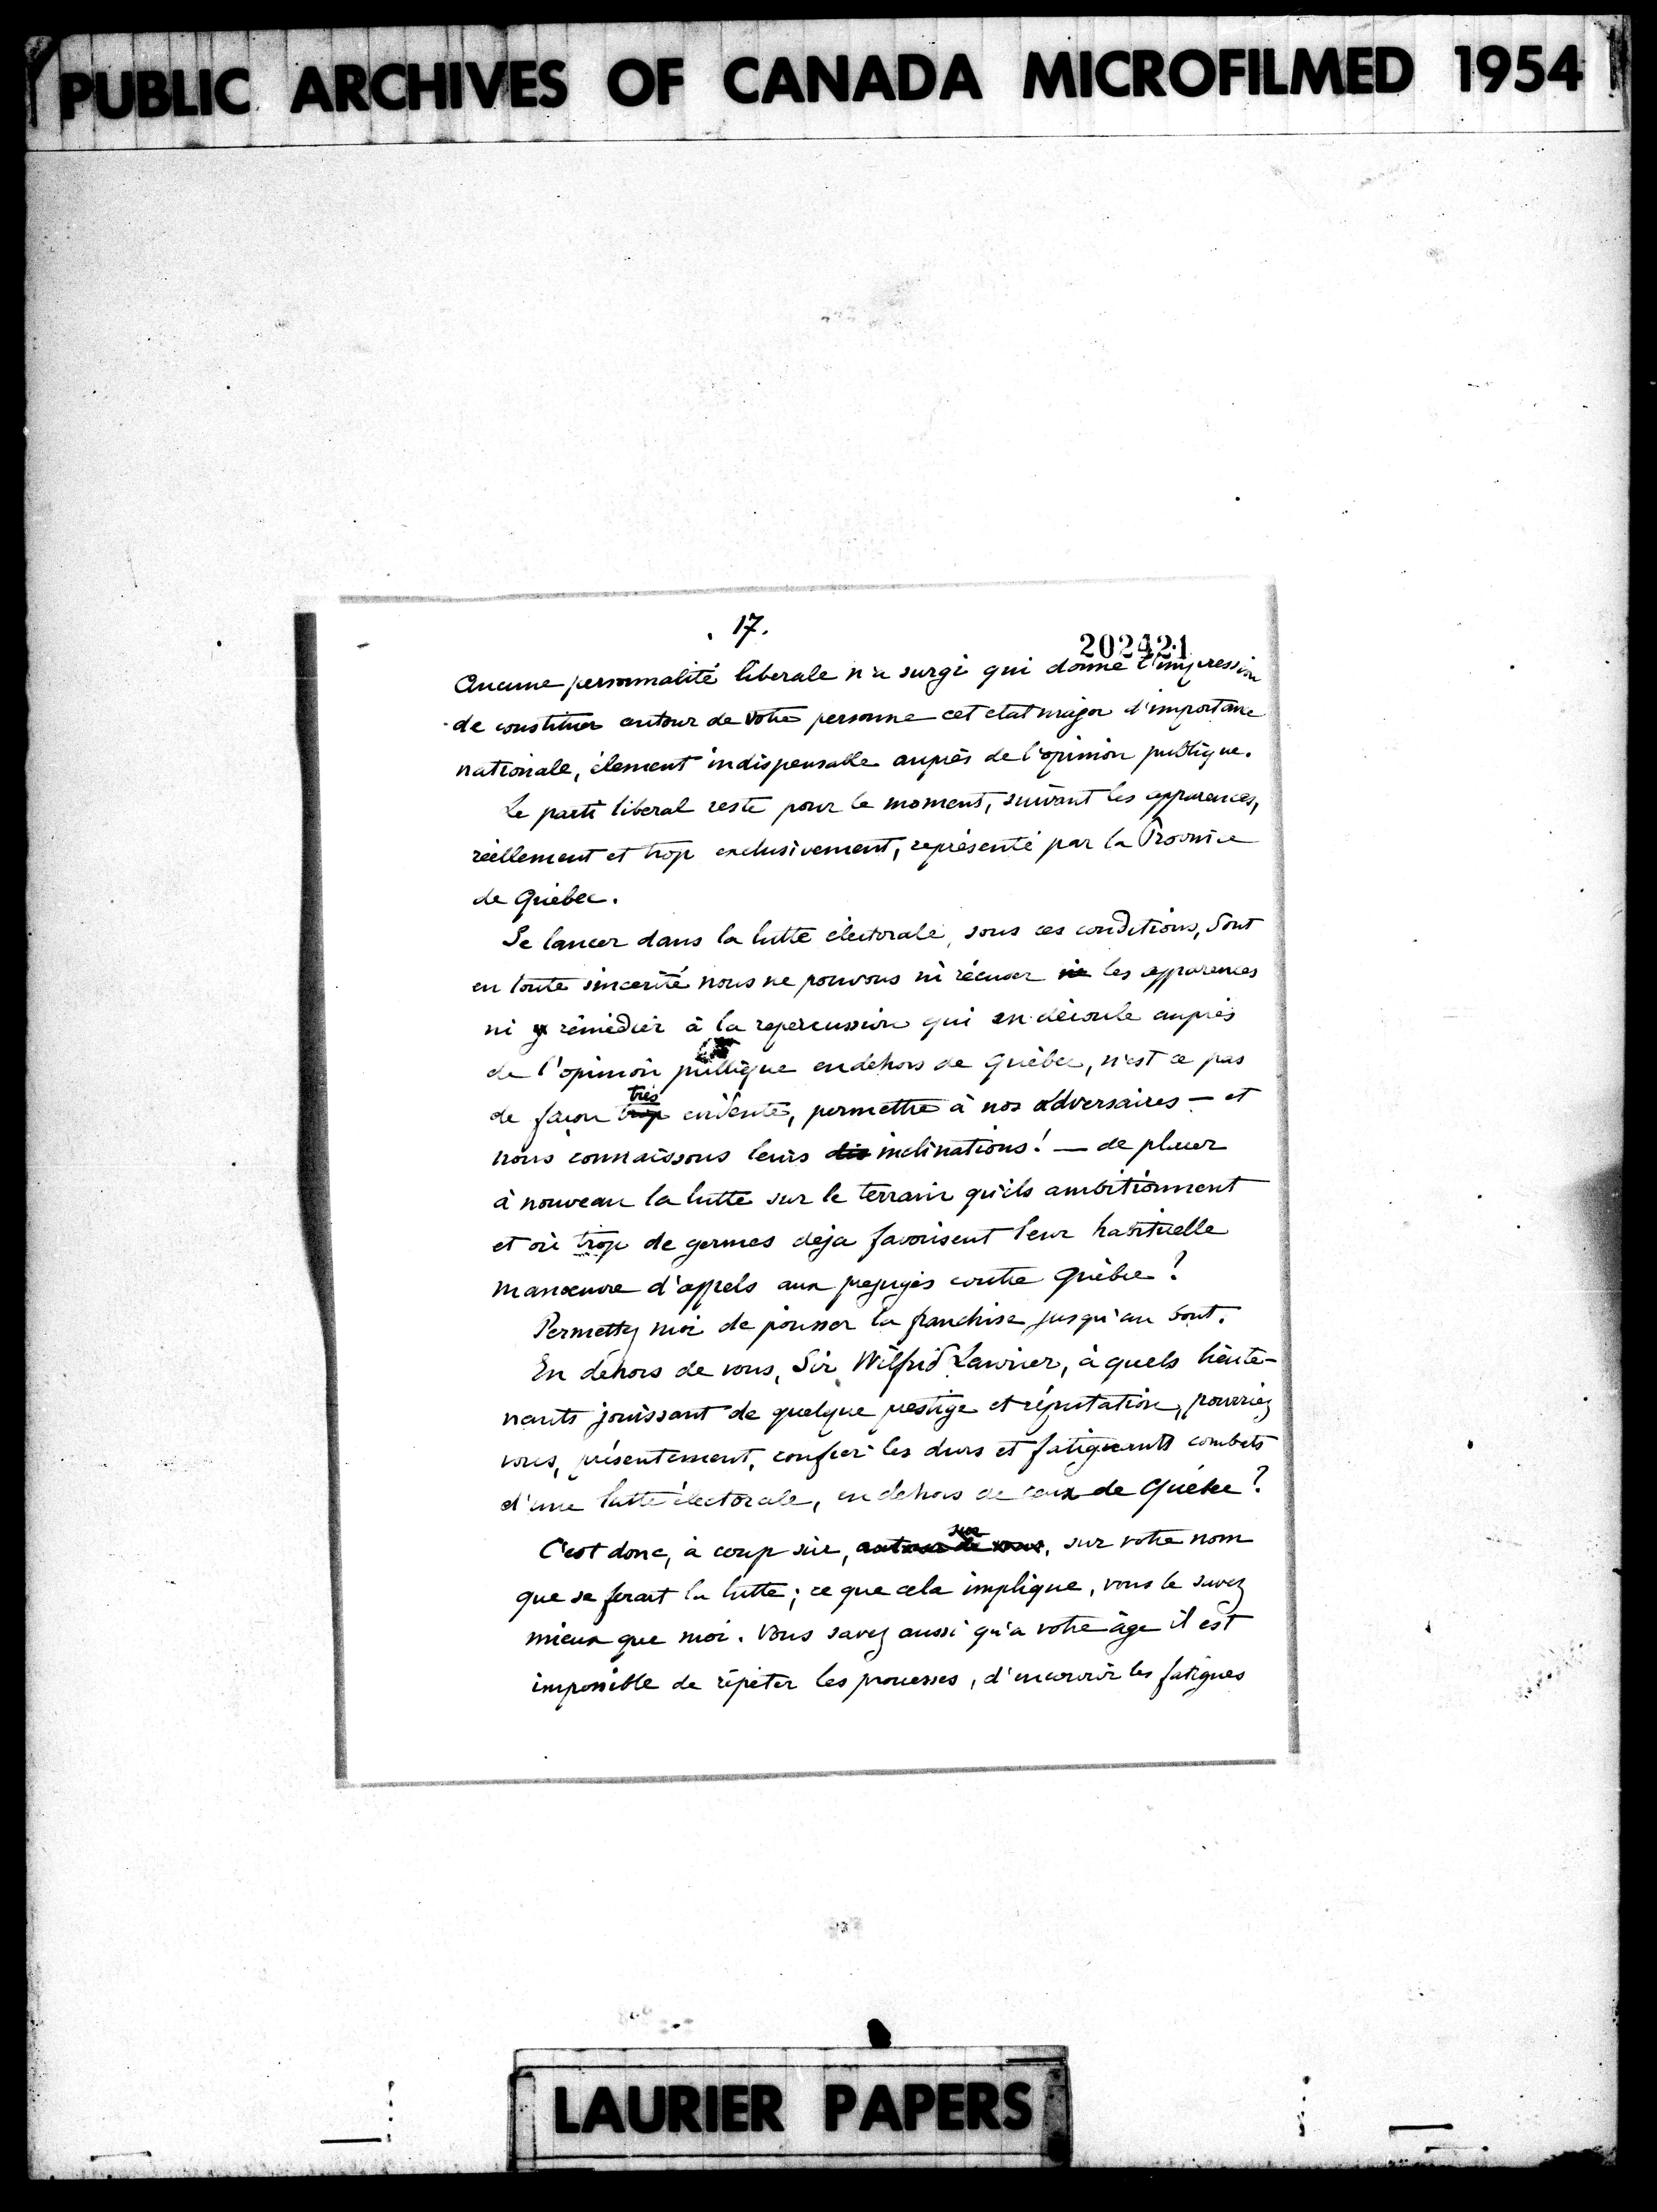 PUBLIC ARCHIVES OF CANADA MICROFILMED 1954
. 17.
202421
Aucune personnalité libérale n'a surgi qui donne l'impression
de constituer autour de votre personne cet etat major d'importance
nationale, élement indispensable auprès de l'opinion publique.
Le parti liberal reste pour le moment, suivant les apparences,
réellement et trop exclusivement, représenté par la Province
de Québec.
Se lancer dans la lutte électorale, sous ces conditions, dont
en toute sincerité nous ne pouvons ni récuser les apparences
ni y rémédier à la repercussion qui en découle auprès
de l'opinion publique en dehors de Québec, n'est ce pas
de façon trop très evidente, permettre à nos adversaires — et
nous connaissons leurs inclinations! — de placer
à nouveau la lutte sur le terrain qu'ils ambitionnent
et où trop de germes déja favorisent leur habituelle
manoeuvre d'appels aux prejugés contre Québec?
Permettez moi de pousser la franchise jusqu'au bout.
En dehors de vous, Sir Wilfrid Laurier, à quels lieute-
nants jouissant de quelque prestige et réputation, pourriez
vous, présentement, confier les durs et fatiguants combats
d'une lutte électorale, en dehors de ceux de Québec?
C'est donc, à coup sûr, autour de vous, sur sur votre nom
que se ferait la lutte; ce que cela implique, vous le savez
mieux que moi. Vous savez aussi qu'a votre âge il est
impossible de répéter les prouesses, d'encourir les fatigues
LAURIER PAPERS